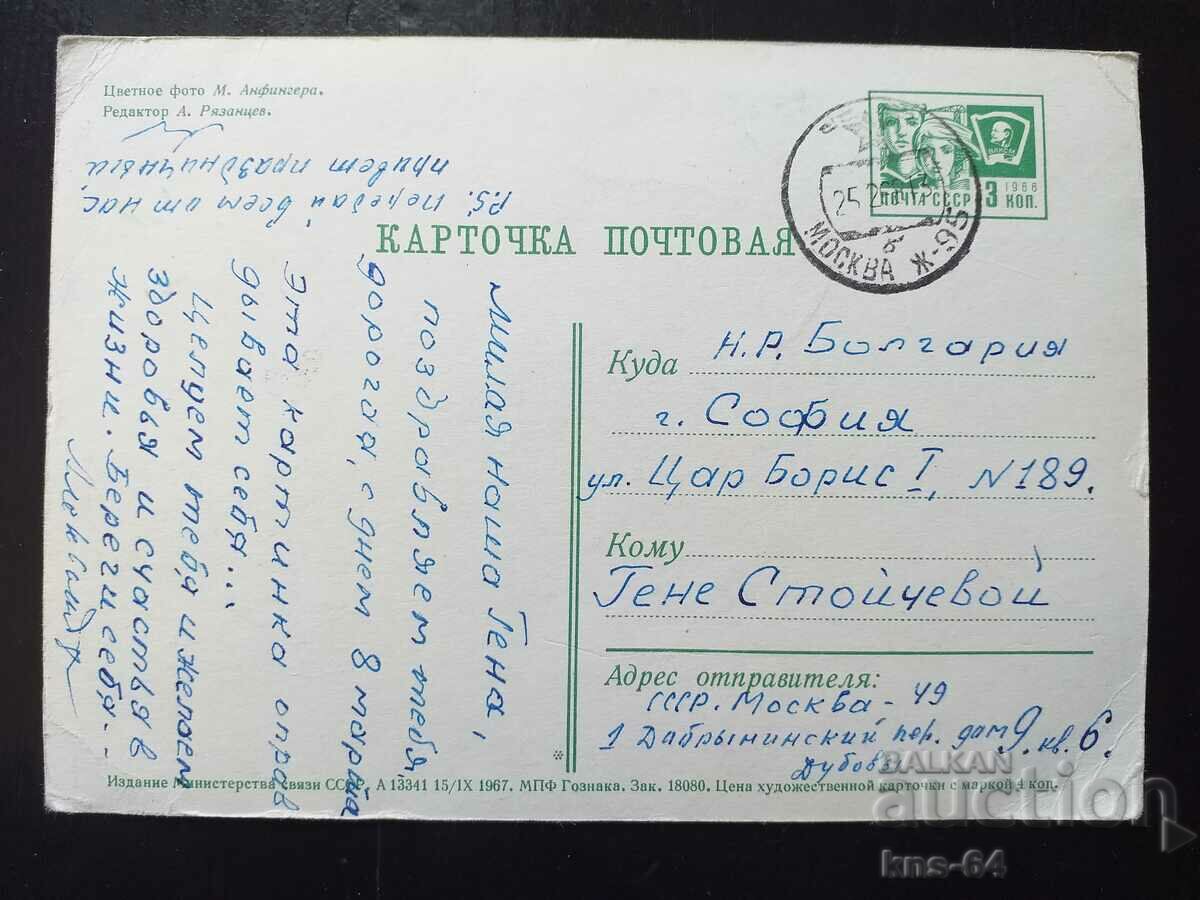 Цветное фото М. Анфингера.
Редактор А. Рязанцев.
P.S. Передай всем от нас
привет праздничный
КАРТОЧКА ПОЧТОВАЯ
ВЛКСМ
1966
ПОЧТА СССР 3 КОП.
МОСКВА Ж-95
Милая наша Гена,
поздравляем тебя
дорогая, с днем 8 марта
Эта картинка оправ
дывает себя...
Целуем тебя и желаем
здоровья и счастья в
жизни. Береги себя..
Куда Н.Р. Болгария
г. София
ул. Цар Борис I, N 189.
Кому
Гене Стойчевой
Адрес отправителя:
СССР. Москва - 49
1 Дабрынинский пер. дам 9. кв. 6.
Дубовы
Издание Министерства связи СССР. А 13341 15/IX 1967. МПФ Гознака. Зак. 18080. Цена художественной карточки с маркой 4 коп.
BALKAN
auction
kns-64